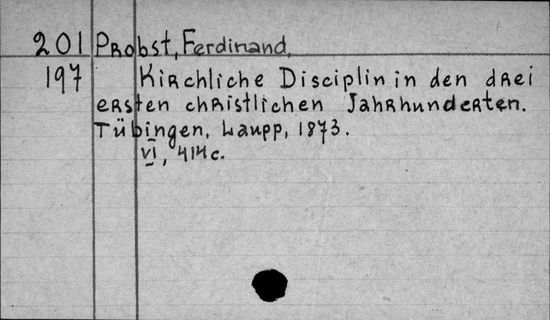 201 Probst, Ferdinand.
197 Kirchliche Disciplin in den drei
ersten christlichen Jahrhunderten.
Tübingen, Laupp, 1873.
VI, 414 c.